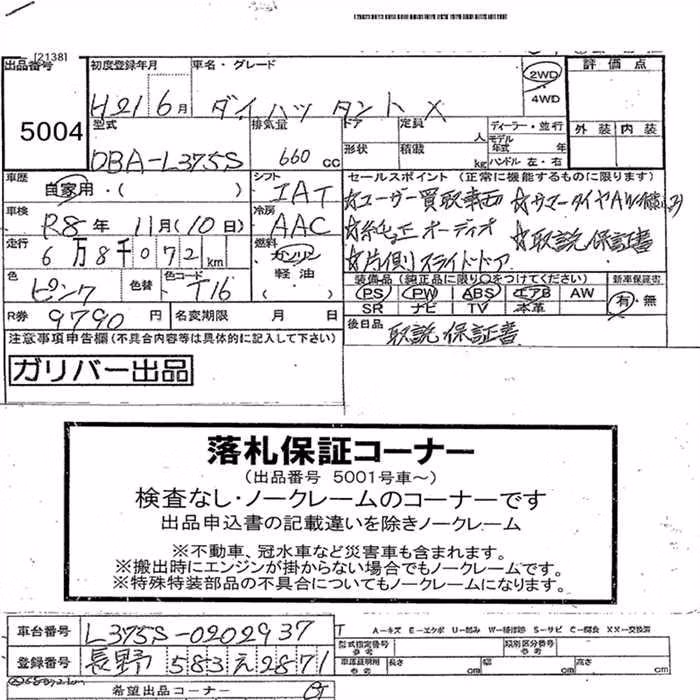 [2138]
出品番号 5004
初度登録年月 H21 6月
車名・グレード ダイハツ タント X
2WD
4WD
評価点
外装 内装
型式 DBA-L375S
排気量 660 cc
ドア
形状
定員 人
積載 kg
ディーラー・並行
モデル年式 年
ハンドル 左・右
車歴 自家用・( )
シフト IAT
セールスポイント (正常に機能するものに限ります)
☆ユーザー買取車両
☆純正オーディオ
☆片側スライドドア
☆取説 保証書
車検 R8年 11月(10日)
冷房 AAC
走行 6万8千072km
燃料 ガソリン
軽油
( )
色 ピンク
色替
色コード T16
装備品 (純正品に限り○をつけてください)
PS PW ABS エアB AW
SR ナビ TV 本革
新車保証書
有・無
R券 9790円
名変期限 月 日
後日品 取説 保証書
注意事項申告欄 (不具合内容等は具体的に記入して下さい)
ガリバー出品
落札保証コーナー
(出品番号 5001号車~)
検査なし・ノークレームのコーナーです
出品申込書の記載違いを除きノークレーム
※不動車、冠水車など災害車も含まれます。
※搬出時にエンジンが掛からない場合でもノークレームです。
※特殊特装部品の不具合についてもノークレームになります。
車台番号 L375S-0202937
登録番号 長野 583 え 2871
希望出品コーナー
A-キズ E-エクボ U-凹み W-補修跡 S-サビ C-腐食 XX-交換済
型式指定番号 参考
類別区分番号 参考
車庫証明用 参考
長さ cm
幅 cm
高さ cm